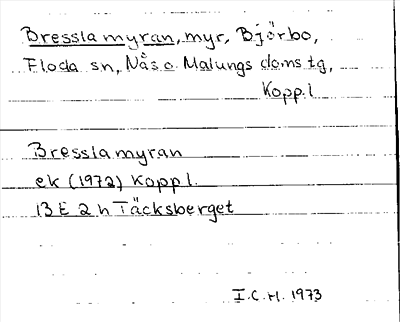 Bresslamyran, myr, Björbo,
Floda sn, Nås o. Malungs doms tg,
Kopp.l
Bresslamyran
ek (1972) Kopp l.
13 E 2 h Täcksberget
I.C.H. 1973